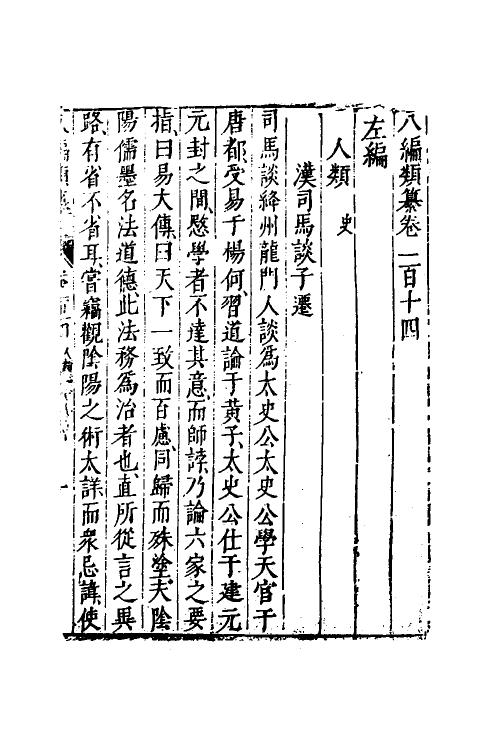 八編類纂卷二百十四
左編
人類 史
漢司馬談子遷
司馬談絳州龍門人談爲太史公太史公學天官于
唐都受易于楊何習道論于黄子太史公仕于建元
元封之間愍學者不達其意而師誖乃論六家之要
指曰易大傳曰天下一致而百慮同歸而殊塗夫陰
陽儒墨名法道德此法務爲治者也直所從言之異
路有省不省耳嘗竊觀陰陽之術太詳而衆忌諱使